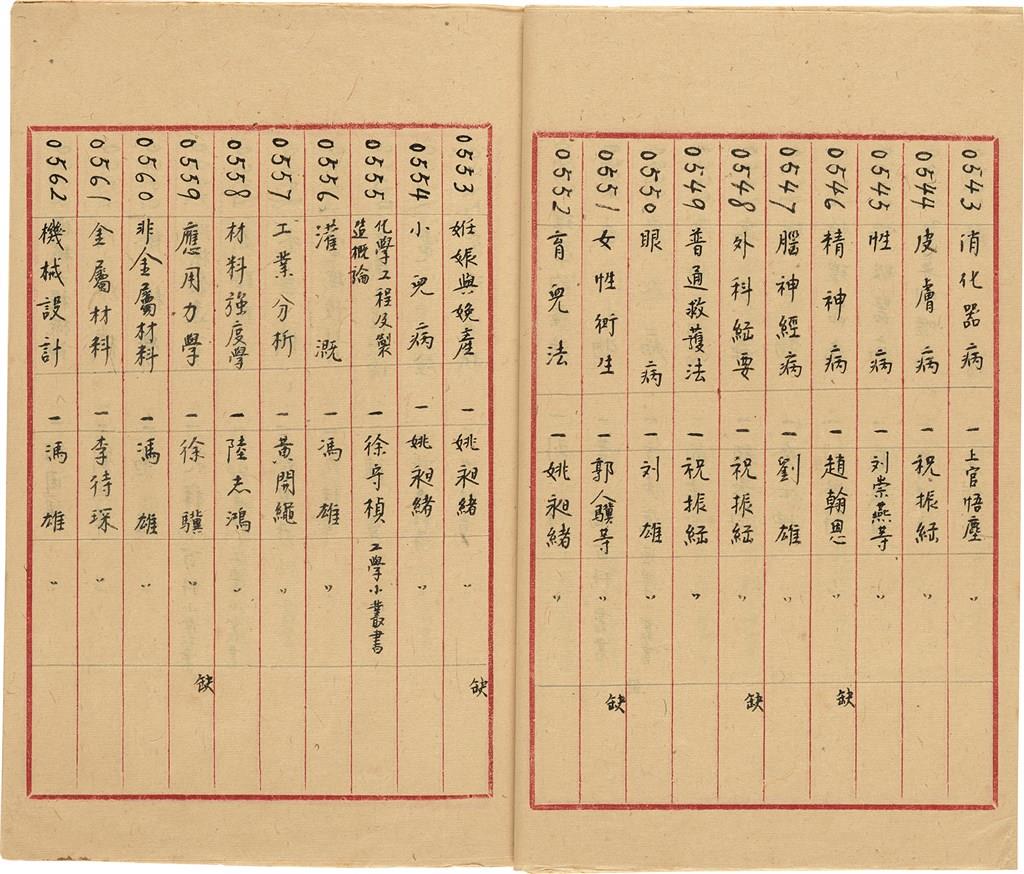 0543 消化器病 一 上官悟塵
0544 皮膚病 一 祝振綱 〃
0545 性病 一 刘崇燕等 〃
0546 精神病 一 趙翰恩 〃 缺
0547 腦神經病 一 劉雄 〃
0548 外科綱要 一 祝振綱 〃 缺
0549 普通救護法 一 祝振綱 〃
0550 眼病 一 刘雄 〃
0551 女性衛生 一 郭人驥等 〃 缺
0552 育兒法 一 姚昶緒 〃
0553 妊娠與娩產 一 姚昶緒 〃 缺
0554 小兒病 一 姚昶緒 〃
0555 化學工程及製造概論 一 徐守楨 工學小叢書
0556 灌溉 一 馮雄 〃
0557 工業分析 一 黃開繩 〃
0558 材料強度學 一 陸志鴻 〃
0559 應用力學 一 徐驥 〃 缺
0560 非金屬材料 一 馮雄 〃
0561 金屬材料 一 李待琛 〃
0562 機械設計 一 馮雄 〃